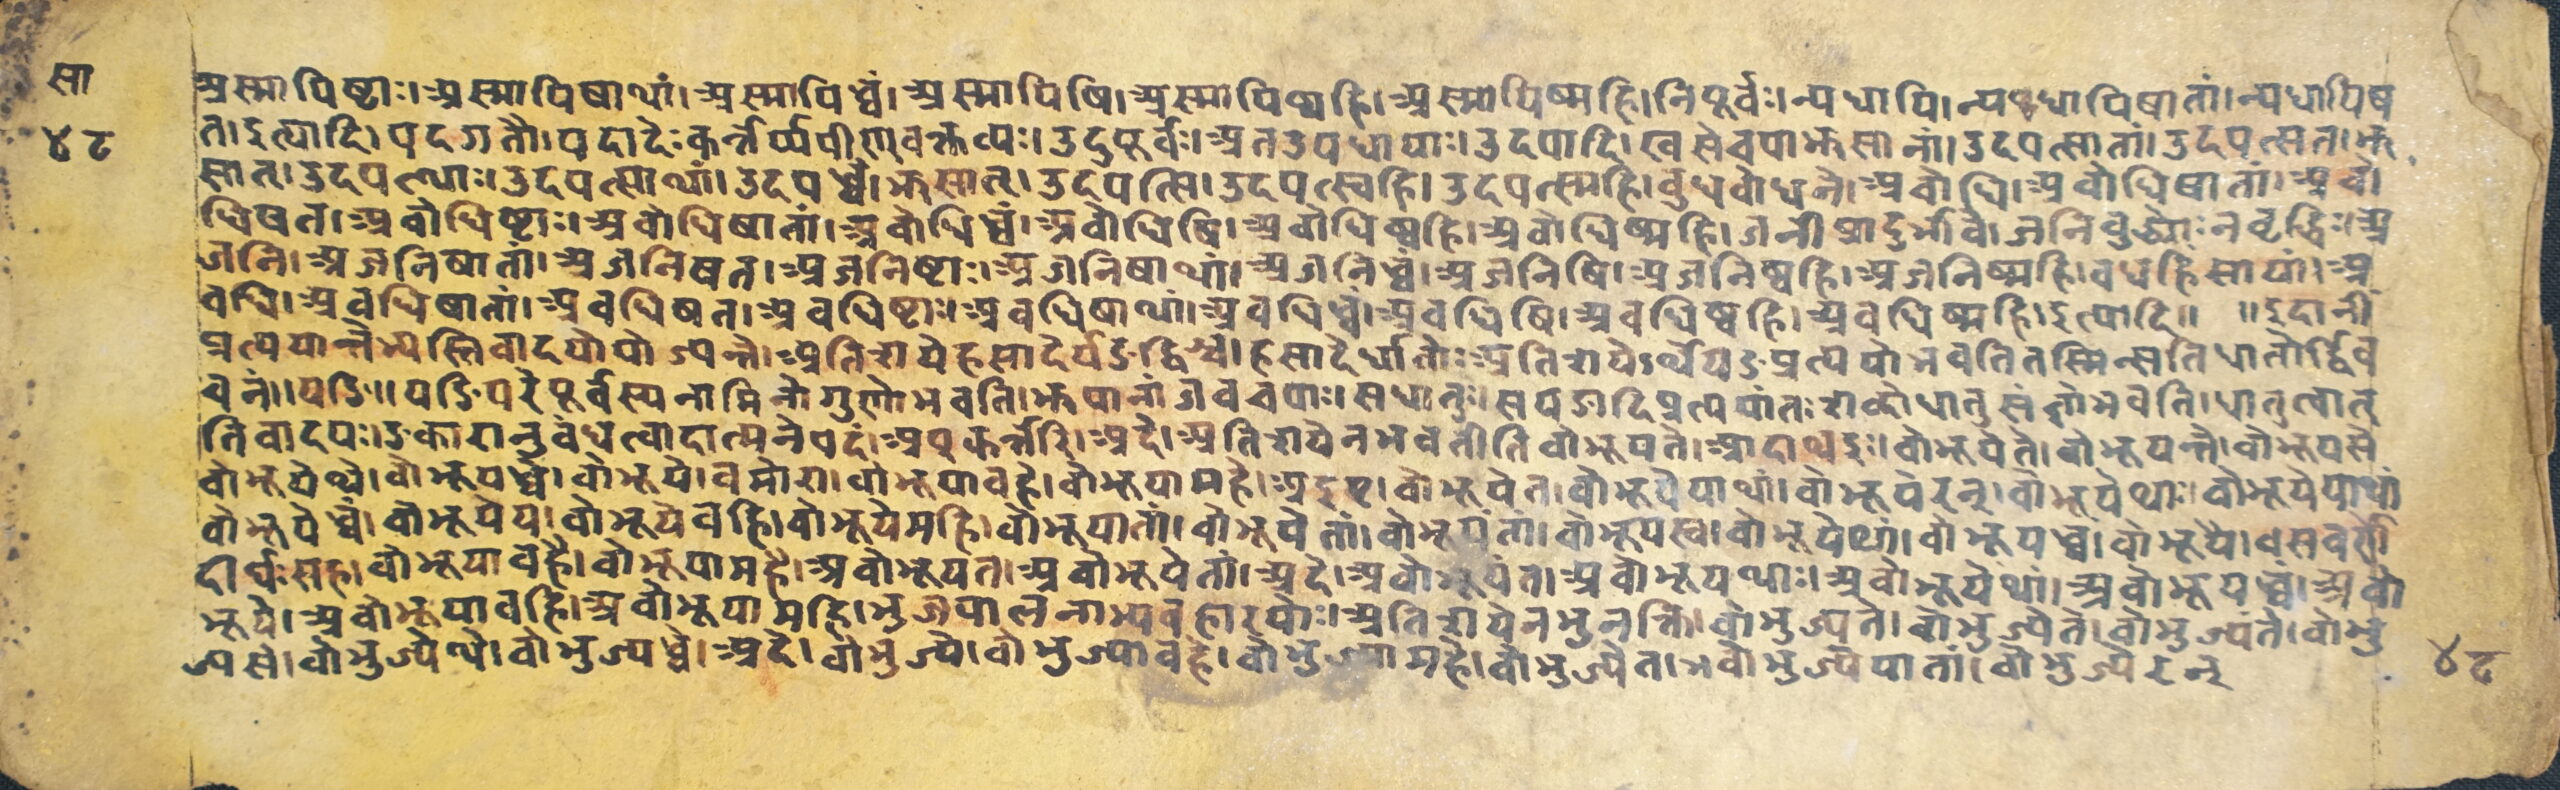 सा
४८
अस्मापिष्टाः।अस्मापिषाथां।अस्मापिध्वं।अस्मापिषि।अस्मापिष्वहि।अस्मापिष्महि।निपूर्वः।न्यधापि।न्यधापिषातां।न्यधापिष
त।इत्यादि।पदगतौ।पदादेःकर्त्तर्य्यपीण्वक्तव्यः।उदुपूर्वः।अतउपधायाः।उदपादि।खसेचपाझसानां।उदपत्सातां।उदपत्सत।झ
सात्।उदपत्थाः।उदपत्साथां।उदपध्वं।झसात्।उदपत्सि।उदपत्स्वहि।उदपत्स्महि।बुधबोधने।अबोधि।अबोधिषातां।अबो
धिषत।अबोधिष्टाः।अबोधिषातां।अबोधिध्वं।अबोधिषि।अबोधिष्वहि।अबोधिष्महि।जनीप्रादुर्भावे।जनिवुध्योःनवृद्धिः।अ
जनि।अजनिषातां।अजनिषत।अजनिष्टाः।अजनिषाथां।अजनिध्वं।अजनिषि।अजनिष्वहि।अजनिष्महि।वधहिंसायां।अ
वधि।अवधिषातां।अवधिषत।अवधिष्टाः।अवधिषाथां।अवधिध्वं।अवधिषि।अवधिष्वहि।अवधिष्महि।इत्यादि॥ ॥इदानीं
प्रत्ययान्तेभ्यस्तिवादयोयोज्यन्ते।अतिशयेहसादेर्यङद्विश्च।हसादेर्धातोःअतिशयेऽर्थेयङ्प्रत्ययोभवतितस्मिन्सतिधातोर्द्विव
चनं॥यङि॥यङिपरेपूर्वस्यनामिनोगुणोभवति।झपानांजवचपाः।सधातुः।सयङादिप्रत्ययांतःशब्दोधातुसंज्ञोभवति।धातुत्वात्
तिवादयः।ङकारानुवंधत्वादात्मनेपदं।अप्कर्त्तरि।अदे।अतिशयेनभवतीतिवोभूयते।आदाथइः।वोभूयेते।वोभूयन्ते।वोभूयसे
वोभूयेथे।वोभूयध्वे।वोभूये।वमोरा।वोभूयावहे।वोभूयामहे।अइए।वोभूयेत।वोभूयेयाथां।वोभूयेरन्।वोभूयेथाः।वोभूयेयाथां
वोभूयेध्वं।वोभूयेय।वोभूयेवहि।वोभूयेमहि।वोभूयातां।वोभूयेतां।वोभूयंतां।वोभूयस्व।वोभूयेथां।वोभूयध्वं।वोभूयै।सवर्णे
दीर्घःसह।वोभूयावहै।वोभूयामहै।अवोभूयत।अवोभूयेतां।अदे।अवोभूयंत।अवोभूयथाः।अवोभूयेथां।अवोभूयध्वं।अवो
भूये।अवोभूयावहि।अवोभूयामहि।भुजपालनाभ्यवहारयोः।अतिशयेनभुनक्ति।वोभुज्यते।वोभुज्येते।वोभुज्यंते।वोभु
ज्यसे।वोभुज्येथे।वोभुज्यध्वे।अदे।वोभुज्ये।वोभुज्यावहे।वोभुज्यामहे।वोभुज्येत।वोभुज्येयातां।वोभुज्येरन्
४८